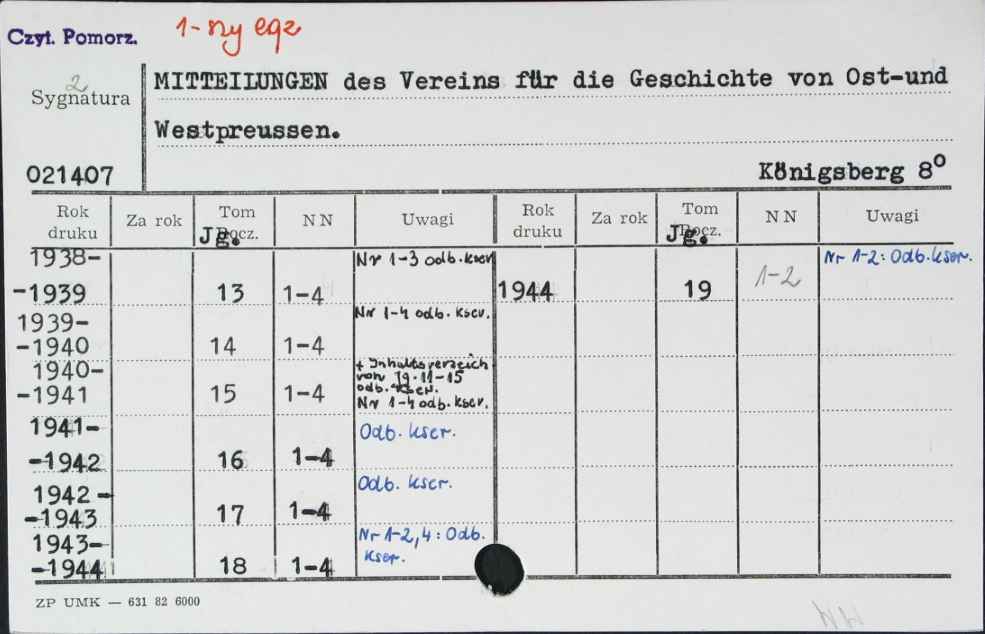 Czyt. Pomorz.
1-szy egz
2
Sygnatura
MITTEILUNGEN des Vereins für die Geschichte von Ost-und
Westpreussen.
021407
Königsberg 8°
Rok druku Za rok Tom Rocz. Jg. N N Uwagi Rok druku Za rok Tom Rocz. Jg. N N Uwagi
1938-
-1939 13 1-4 Nr 1-3 odb. kser
1944 19 1-2 Nr 1-2: Odb. kser.
1939-
-1940 14 1-4 Nr 1-4 odb. kser.
1940-
-1941 15 1-4 + Inhaltsverzeich
von Jg. 11-15
odb. kser.
Nr 1-4 odb. kser.
1941-
-1942 16 1-4 Odb. kser.
1942-
-1943 17 1-4 Odb. kser.
1943-
-1944 18 1-4 Nr 1-2, 4: Odb.
kser.
ZP UMK — 631 82 6000